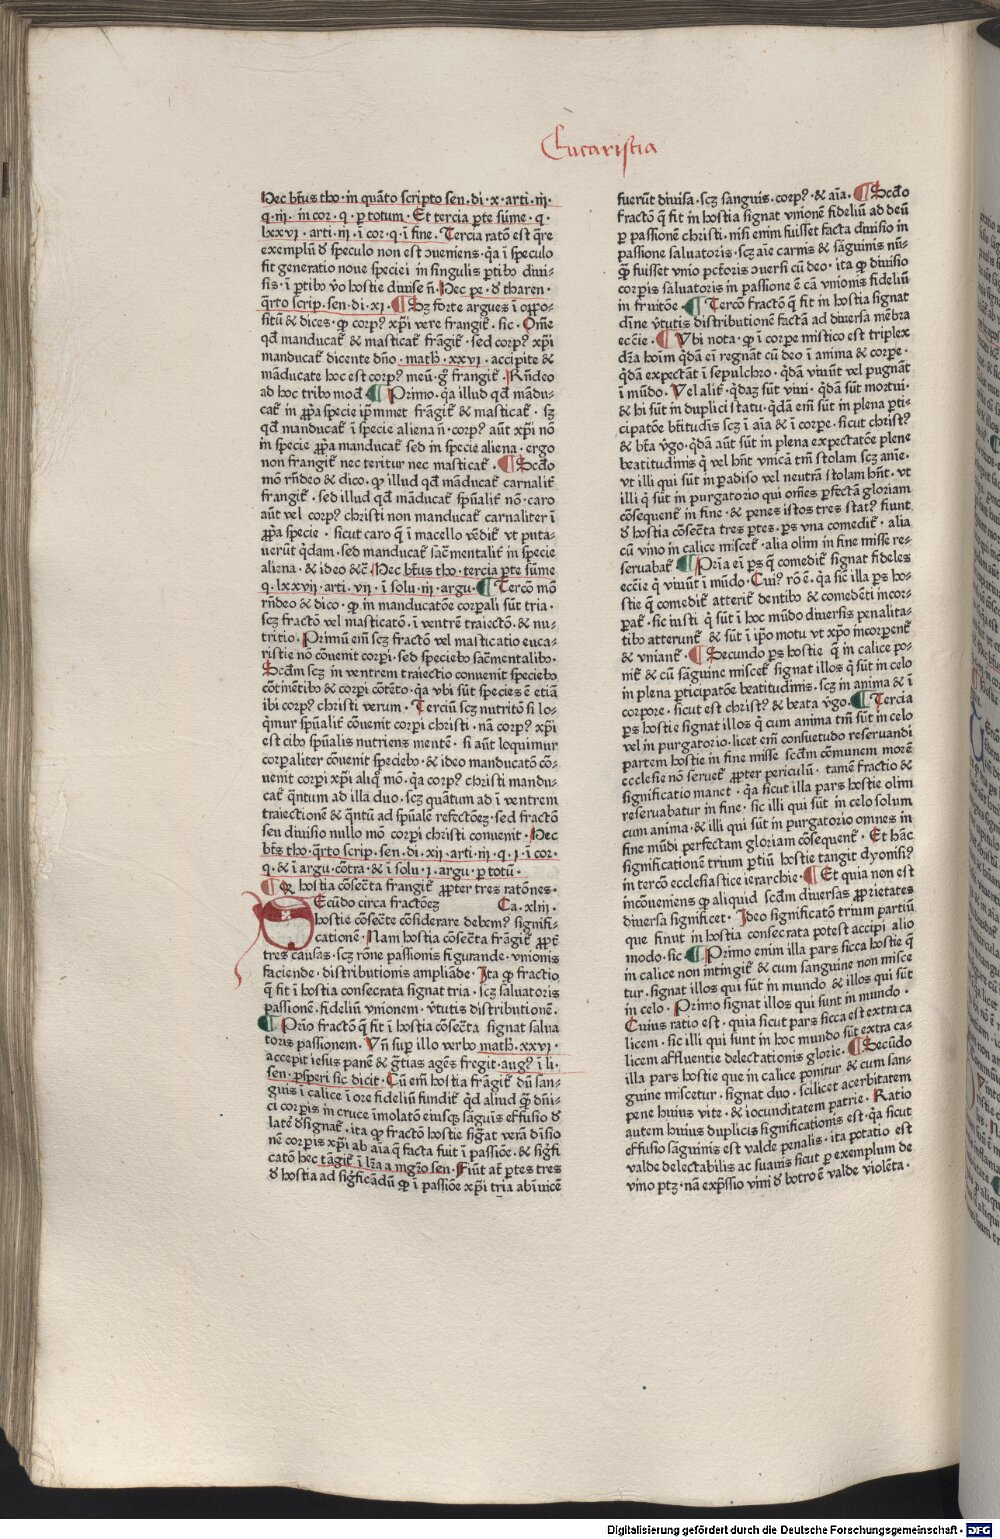 Eucaristia
Hec bt̄us tho · in quāto scripto sen · di · x · arti · iij ·
q · iij · in cor · q · ꝑ totum · Et tercia ꝑte sūme · q ·
lxxvi · arti · iij · ī cor · q · ī fine · Tercia ratō est q̄re
exemplū ꝺ speculo non est ↄueniens · q̄a ī speculo
fit generatio noue speciei in singulis ꝑtibꝰ diui/
sis · ī ꝑtibꝰ v̄o hostie diuise n̄ · Hec pe · ꝺ tharen ·
q̄rto scrip · sen · di · xj · ¶ Sꝫ forte argues ī oppo/
sitū & dices · ꝙ corpꝰ xp̄i vere frangit̄ · sic · Om̄e
qd̄ manducat̄ & masticat̄ frāgit̄ · sed corpꝰ xp̄i
manducat̄ dicente dn̄o · math · xxvi · accipite &
māducate hoc est corpꝰ meū · gͦ frangit̄ · Rn̄deo
ad hoc tribꝰ mod̄ ¶ Primo · q̄a illud qd̄ mādu/
cat̄ in ꝓp̄a specie ip̄mmet frāgit̄ & masticat̄ · sꝫ
qd̄ manducat̄ ī specie aliena n̄ · corpꝰ aūt xp̄i nō
in specie ꝓp̄a manducat̄ sed in specie aliena · ergo
non frangit̄ nec teritur nec masticat̄ · ¶ Scd̄o
mō rn̄deo & dico · ꝙ illud qd̄ māducat̄ carnalit̄
frangit̄ · sed illud qd̄ māducat̄ spūalit̄ nō · caro
aūt vel corpꝰ christi non manducat̄ carnaliter ī
ꝓp̄a specie · sicut caro q̄ ī macello vēdit̄ vt puta/
uerūt q̄dam · sed manducat̄ sac̄mentalit̄ in specie
aliena · & ideo &c̄ · Hec bt̄us tho · tercia ꝑte sūme
q · lxxvij · arti · vij · ī solu · iij · argu · ¶ Tercō mō
rn̄deo & dico · ꝙ in manducatōe corꝑali sūt tria ·
scꝫ fractō vel masticatō · ī ventrē traiectō · & nu/
tritio · Primū em̄ scꝫ fractō vel masticatio euca/
ristie nō cōuenit corꝑi · sed speciebꝰ sac̄mentalibꝰ ·
Scd̄m scꝫ in ventrem traiectio conuenit speciebꝰ
cōtinētibꝰ & corꝑi cōtēto · q̄a vbi sūt species ē etiā
ibi corpꝰ christi verum · Terciū scꝫ nutritō si lo/
q̄mur spūalit̄ cōuenit corꝑi christi · nā corpꝰ xp̄i
est cibꝰ spūalis nutriens mentē · si aūt loquimur
corꝑaliter cōuenit speciebꝰ · & ideo manducatō cō/
uenit corꝑi xp̄i aliq̄ mō · q̄a corpꝰ christi mandu/
cat̄ q̄ntum ad illa duo · scꝫ quātum ad ī ventrem
traiectionē & q̄ntū ad spūalē refectōeꝫ · sed fractō
seu diuisio nullo mō corꝑi christi conuenit · Hec
bt̄s tho · q̄rto scrip · sen · di · xij · arti · iij · q · j · ī cor ·
q · & ī argu · cōtra · & ī solu · j · argu · ꝑ totū ·
¶ Qꝫ hostia cōsec̄ta frangit̄ ꝓpter tres ratōnes ·
Ecūdo circa fractōeꝫ Ca · xliij ·
hostie cōsec̄te cōsiderare debemꝰ signifi/
cationē · Nam hostia cōsec̄ta frāgit̄ ꝓpt̄
tres causas · scꝫ rōne passionis figurande · vnionis
faciende · distributionis ampliāde · Ita ꝙ fractio
q̄ fit ī hostia consecrata signat tria · scꝫ saluatoris
passionē · fideliū vnionem · v̄tutis distributionē ·
¶ Prīo fractō q̄ fit ī hostia cōsec̄ta signat salua
toris passionem · Vn̄ suꝑ illo verbo math · xxvi ·
accepit iesus panē & gr̄tias agēs fregit · augꝰ ī li ·
sen · ꝓsperi sic dicit · Cū em̄ hostia frāgit̄ dū san/
guis ī calice ī ore fideliū fundit̄ qd̄ aliud q̄ꝫ dn̄i/
ci corꝑis in cruce īmolatō eiusqꝫ sāguīs effusio ꝺ
latē ꝺsignat̄ · ita ꝙ fractō hostie sig̅at verā dīsio
nē corꝑis xp̄i ab aīa q̄ facta fuit ī passiōe · & sig̅fi
catō hec tāgit̄ ī lr̄a a mgr̄o sen · Fiūt at̄ ꝑtes tres
ꝺ hostia ad sig̅ficādū ꝙ ī passiōe xp̄i tria abīuicē
fuerūt diuisa · scꝫ sanguis · corpꝰ · & aīa · ¶ Scd̄o
fractō q̄ fit in hostia signat vnionē fideliū ad deū
ꝑ passionē christi · nisi enim fuisset facta diuisio in
passione saluatoris · scꝫ aīe carnis & sāguinis nū/
q̄ꝫ fuisset vnio pctoris ↄuersi cū deo · ita ꝙ diuisio
corꝑis saluatoris in passione ē cā vnionis fideliū
in fruitōe · ¶ Tercō fractō q̄ fit in hostia signat
diue v̄tutis distributionē factā ad diuersa mēbra
ecc̄ie · ¶ Vbi nota · ꝙ ī corꝑe mistico est triplex
dr̄a hoīm q̄dā ei regnāt cū deo ī anima & corꝑe ·
q̄dā expectāt ī sepulchro · q̄dā viuūt vel pugnāt
ī mūdo · Vel alit̄ · q̄daꝫ sūt viui · q̄dā sūt mortui ·
& hi sūt in duplici statu · q̄dā em̄ sūt in plena ꝑti/
cipatōe bt̄itudīs scꝫ ī aīa & ī corꝑe · sicut christꝰ
& bt̄a v̄go · q̄dā aūt sūt in plena expectatōe plene
beatitudinis q̄ vel hn̄t vnicā tm̄ stolam scꝫ anīe ·
vt illi qui sūt in ꝑadiso vel neutrā stolam hn̄t · vt
illi q̄ sūt in purgatorio qui om̄es ꝑfectā gloriam
cōsequent̄ in fine · & penes istos tres statꝰ fiunt
ꝺ hostia cōsec̄ta tres ꝑtes · ꝑs vna comedit̄ · alia
cū vino in calice miscet̄ · alia olim in fine misse re/
seruabat̄ ¶ Prīa eī ꝑs q̄ comedit̄ signat fideles
ecc̄ie q̄ viuūt ī mūdo · Cuiꝰ rō ē · q̄a sic̄ illa ꝑs ho/
stie q̄ comedit̄ atterit̄ dentibꝰ & comedēti incor/
ꝑat̄ · sic iusti q̄ sūt ī hoc mūdo diuersis penalita/
tibꝰ atterunt̄ & sūt ī ip̄o motu vt xp̄o incorꝑent̄
& vniant̄ · ¶ Secundo ꝑs hostie q̄ in calice po/
nit̄ & cū sāguine miscet̄ signat illos q̄ sūt in celo
in plena ꝑticipatōe beatitudinis · scꝫ in anima & ī
corpore · sicut est christꝰ & beata v̄go · ¶ Tercia
ꝑs hostie signat illos q̄ cum anima tm̄ sūt in celo
vel in purgatorio · licet em̄ consuetudo reseruandi
partem hostie in fine misse scd̄m cōmunem morē
ecclesie nō seruet̄ ꝓpter periculū · tamē fractio &
significatio manet · q̄a sicut illa pars hostie olim
reseruabatur in fine · sic illi qui sūt in celo solum
cum anima · & illi qui sūt in purgatorio omnes in
fine mūdi perfectam gloriam cōsequent̄ · Et hāc
significationē trium ꝑtiū hostie tangit dyonisiꝰ
in tercō ecclesiastice ierarchie · ¶ Et quia non est
incōueniens ꝙ aliquid scd̄m diuersas ꝓprietates
diuersa significet · Ideo significatō trium partiū
que fiunt in hostia consecrata potest accipi alio
modo · sic ¶ Primo enim illa pars sicca hostie q̄
in calice non intingit̄ & cum sanguine non misce
tur · signat illos qui sūt in mundo & illos qui sūt
in celo · Primo signat illos qui sunt in mundo ·
Cuius ratio est · quia sicut pars sicca est extra ca
licem · sic illi qui sunt in hoc mundo sūt extra ca/
licem affluentie delectationis glorie · ¶ Secūdo
illa pars hostie que in calice ponitur & cum san/
guine miscetur · signat duo · scilicet acerbitatem
pene huius vite · & iocunditatem patrie · Ratio
autem huius duplicis significationis est · q̄a sicut
effusio sāguinis est valde penalis · ita potatio est
valde delectabilis ac suauis sicut ꝑ exemplum de
vino ptꝫ · nā exp̄ssio vini ꝺ botro ē valde violēta ·
Digitalisierung gefördert durch die Deutsche Forschungsgemeinschaft - DFG